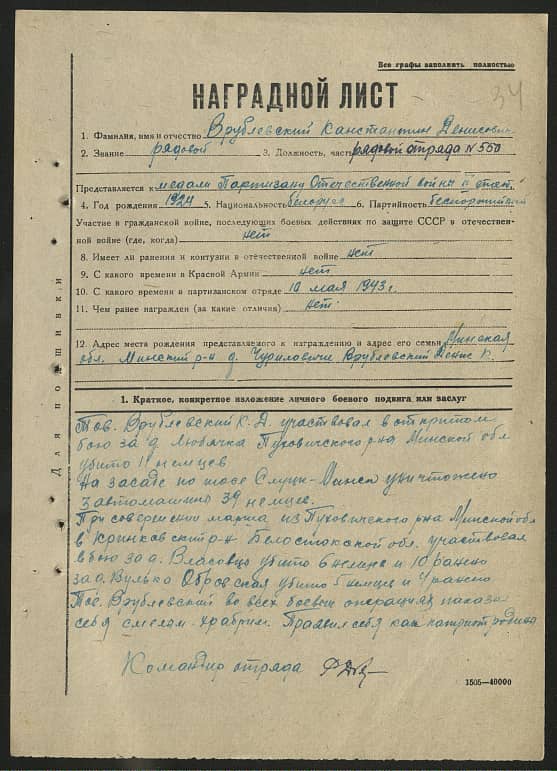 Все графы заполнить полностью
34
НАГРАДНОЙ ЛИСТ
1. Фамилия, имя и отчество Врублевский Канстантин Денисович
2. Звание рядовой 3. Должность, часть рядовой отряда №550
Представляется к медали Партизану Отечественной войны II степ.
4. Год рождения 1924 5. Национальность белорус 6. Партийность беспартийный
Участие в гражданской войне, последующих боевых действиях по защите СССР в отечествен-
ной войне (где, когда) нет
8. Имеет ли ранения и контузии в отечественной войне нет
9. С какого времени в Красной Армии нет
10. С какого времени в партизанском отряде 10 мая 1943 г.
11. Чем ранее награжден (за какие отличия) нет.
12. Адрес места рождения представляемого к награждению и адрес его семьи Минская
обл. Минский р-н д. Чуриловичи Врублевский Денис К.
Для подшивки
1. Краткое, конкретное изложение личного боевого подвига или заслуг
Тов. Врублевский К. Д. участвовал в открытом
бою за д. Любачка Пуховичского р-на Минской обл
убито 11 немцев
На засаде по шосе Слуцк-Минск уничтожено
3 автомашины 39 немцев.
При совершении марша из Пуховичского р-на Минской обл
в Кринковский р-н Белостокской обл. участвовал
в бою за д. Власовцы убито 6 немцев и 10 ранено
за д. Вулько Обровская убито 5 немцев и 4 ранено
Тов. Врублевский во всех боевых операциях показал
себя смелым храбрым. Праявил себя как патриот родины
Командир отряда
1505—40000